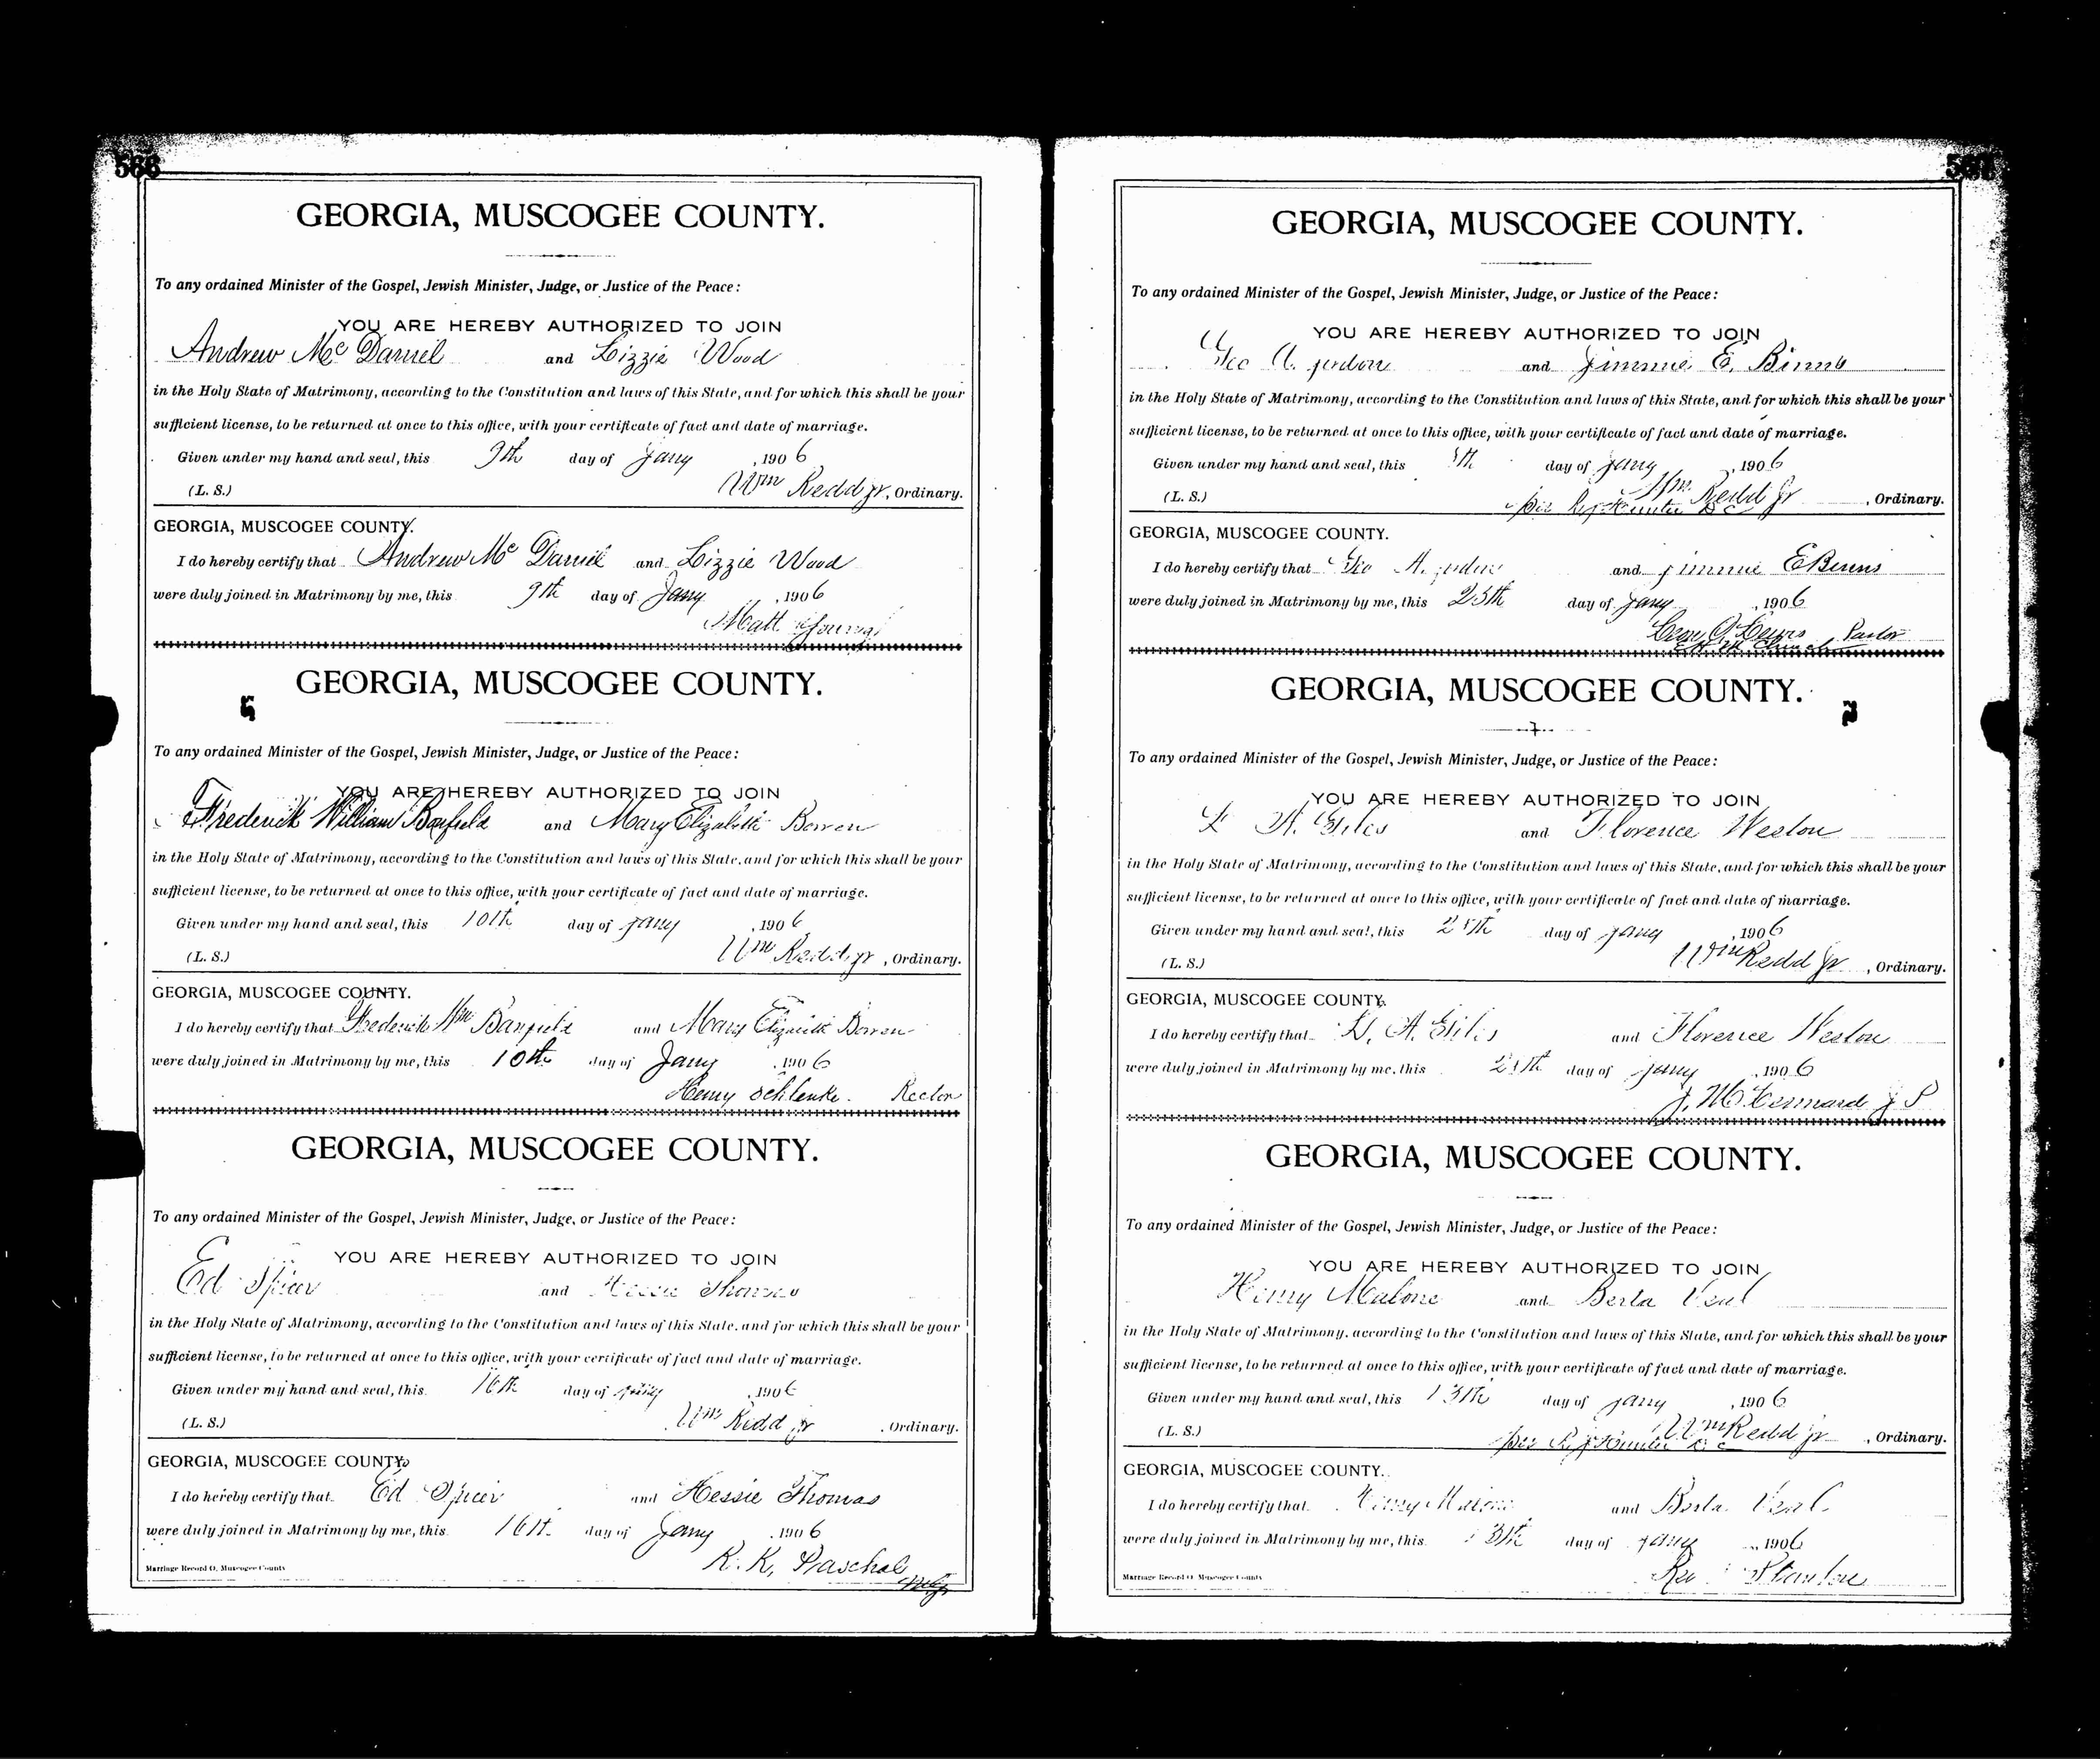 566
GEORGIA, MUSCOGEE COUNTY.
To any ordained Minister of the Gospel, Jewish Minister, Judge, or Justice of the Peace:
YOU ARE HEREBY AUTHORIZED TO JOIN
Andrew Mc Daniel and Lizzie Wood
in the Holy State of Matrimony, according to the Constitution and laws of this State, and for which this shall be your
sufficient license, to be returned at once to this office, with your certificate of fact and date of marriage.
Given under my hand and seal, this 9th day of Jany, 1906
(L. S.) Wm Redd Jr, Ordinary.
GEORGIA, MUSCOGEE COUNTY.
I do hereby certify that Andrew Mc Daniel and Lizzie Wood
were duly joined in Matrimony by me, this 9th day of Jany, 1906
Matt Young
GEORGIA, MUSCOGEE COUNTY.
To any ordained Minister of the Gospel, Jewish Minister, Judge, or Justice of the Peace:
YOU ARE HEREBY AUTHORIZED TO JOIN
Frederick William Banfield and Mary Elizabeth Bowen
in the Holy State of Matrimony, according to the Constitution and laws of this State, and for which this shall be your
sufficient license, to be returned at once to this office, with your certificate of fact and date of marriage.
Given under my hand and seal, this 10th day of Jany, 1906
(L. S.) Wm Redd Jr, Ordinary.
GEORGIA, MUSCOGEE COUNTY.
I do hereby certify that Frederick Wm Banfield and Mary Elizabeth Bowen
were duly joined in Matrimony by me, this 10th day of Jany, 1906
Henry Rector
GEORGIA, MUSCOGEE COUNTY.
To any ordained Minister of the Gospel, Jewish Minister, Judge, or Justice of the Peace:
YOU ARE HEREBY AUTHORIZED TO JOIN
Ed Spicer and Hessie Thomas
in the Holy State of Matrimony, according to the Constitution and laws of this State, and for which this shall be your
sufficient license, to be returned at once to this office, with your certificate of fact and date of marriage.
Given under my hand and seal, this 16th day of Jany, 1906
(L. S.) Wm Redd Jr, Ordinary.
GEORGIA, MUSCOGEE COUNTY.
I do hereby certify that Ed Spicer and Hessie Thomas
were duly joined in Matrimony by me, this 16th day of Jany, 1906
R. K. Paschal
Marriage Record O, Muscogee County
GEORGIA, MUSCOGEE COUNTY.
To any ordained Minister of the Gospel, Jewish Minister, Judge, or Justice of the Peace:
YOU ARE HEREBY AUTHORIZED TO JOIN
Geo A. Jordon and Jimmie E. Binns
in the Holy State of Matrimony, according to the Constitution and laws of this State, and for which this shall be your
sufficient license, to be returned at once to this office, with your certificate of fact and date of marriage.
Given under my hand and seal, this day of Jany, 1906
(L. S.) Wm. Redd Jr, Ordinary.
per
GEORGIA, MUSCOGEE COUNTY.
I do hereby certify that Geo A. Jordon and Jimmie E Binns
were duly joined in Matrimony by me, this 25th day of Jany, 1906
Pastor
GEORGIA, MUSCOGEE COUNTY.
To any ordained Minister of the Gospel, Jewish Minister, Judge, or Justice of the Peace:
YOU ARE HEREBY AUTHORIZED TO JOIN
A. Giles and Florence Weston
in the Holy State of Matrimony, according to the Constitution and laws of this State, and for which this shall be your
sufficient license, to be returned at once to this office, with your certificate of fact and date of marriage.
Given under my hand and seal, this day of Jany, 1906
(L. S.) Wm Redd Jr, Ordinary.
GEORGIA, MUSCOGEE COUNTY.
I do hereby certify that A. Giles and Florence Weston
were duly joined in Matrimony by me, this day of Jany, 1906
J. M. J P
GEORGIA, MUSCOGEE COUNTY.
To any ordained Minister of the Gospel, Jewish Minister, Judge, or Justice of the Peace:
YOU ARE HEREBY AUTHORIZED TO JOIN
Henry Malone and Berta Veal
in the Holy State of Matrimony, according to the Constitution and laws of this State, and for which this shall be your
sufficient license, to be returned at once to this office, with your certificate of fact and date of marriage.
Given under my hand and seal, this 13th day of Jany, 1906
(L. S.) Wm Redd Jr, Ordinary.
per
GEORGIA, MUSCOGEE COUNTY.
I do hereby certify that Henry Malone and Berta Veal
were duly joined in Matrimony by me, this 13th day of Jany 1906
Rev
Marriage Record O, Muscogee County